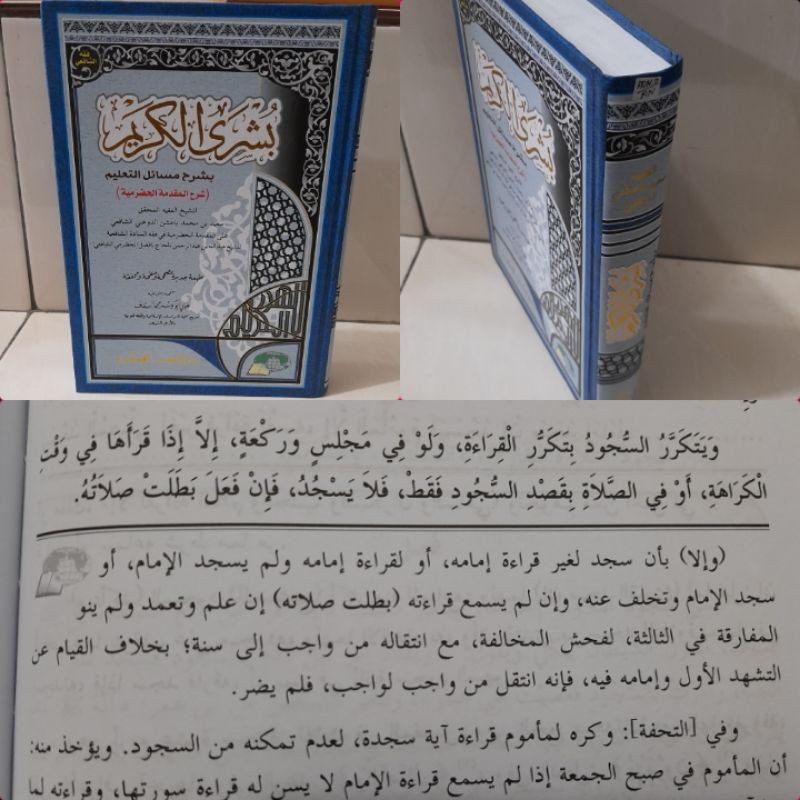 فقه
الشافعي
بشرى الكريم
بشرح مسائل التعليم
(شرح المقدمة الحضرمية)
للشيخ الفقيه المحقق
سعيد بن محمد باعشن الدوعني الشافعي
على المقدمة الحضرمية في فقه السادة الشافعية
بشرى الكريم
وَيَتَكَرَّرُ السُّجُودُ بِتَكَرُّرِ الْقِرَاءَةِ، وَلَوْ فِي مَجْلِسٍ وَرَكْعَةٍ، إِلاَّ إِذَا قَرَأَهَا فِي وَقْتِ
الْكَرَاهَةِ، أَوْ فِي الصَّلاَةِ بِقَصْدِ السُّجُودِ فَقَطْ، فَلاَ يَسْجُدُ، فَإِنْ فَعَلَ بَطَلَتْ صَلاَتُهُ.
(وإلا) بأن سجد لغير قراءة إمامه، أو لقراءة إمامه ولم يسجد الإمام، أو
سجد الإمام وتخلف عنه، وإن لم يسمع قراءته (بطلت صلاته) إن علم وتعمد ولم ينو
المفارقة في الثالثة، لفحش المخالفة، مع انتقاله من واجب إلى سنة؛ بخلاف القيام عن
التشهد الأول وإمامه فيه، فإنه انتقل من واجب لواجب، فلم يضر.
وفي [التحفة]: وكره لمأموم قراءة آية سجدة، لعدم تمكنه من السجود. ويؤخذ منه:
أن المأموم في صبح الجمعة إذا لم يسمع قراءة الإمام لا يسن له قراءة سورتها، وقراءته لما